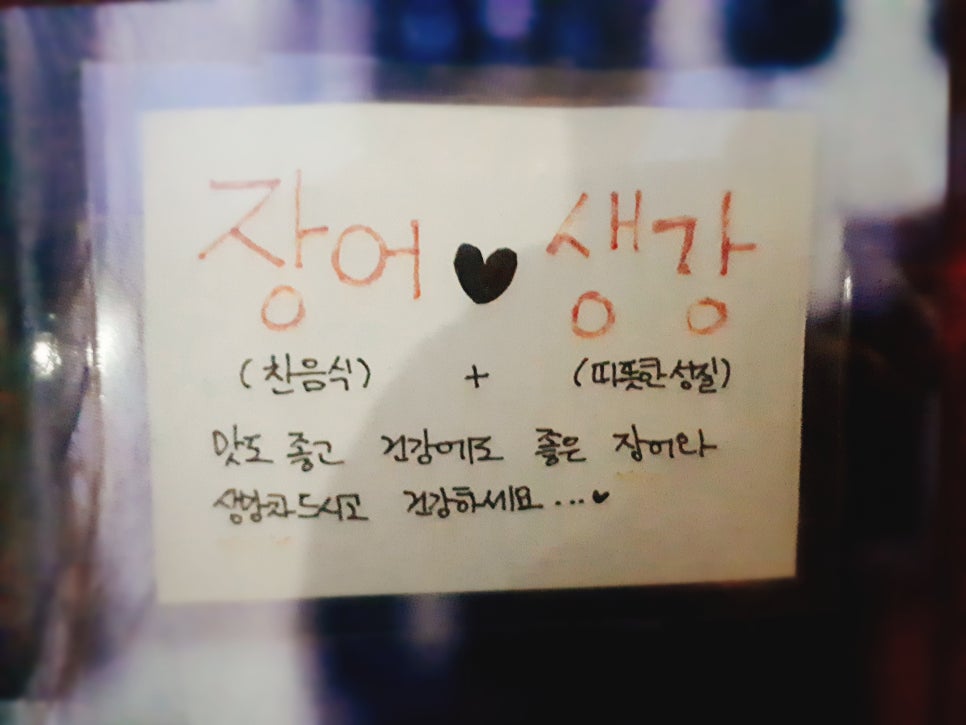 장어 ♥ 생강
(찬음식) + (따뜻한성질)
맛도 좋고 건강에도 좋은 장어와
생강과드시고 건강하세요...♥